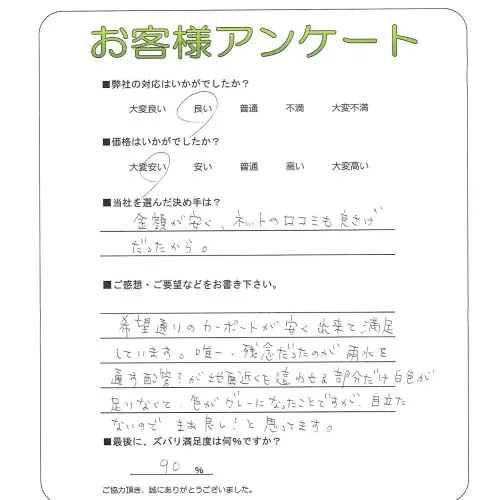 お客様アンケート
■弊社の対応はいかがでしたか？
大変良い 良い 普通 不満 大変不満
■価格はいかがでしたか？
大変安い 安い 普通 高い 大変高い
■当社を選んだ決め手は？
金額が安く、ネットの口コミも良さげ
だったから。
■ご感想・ご要望などをお書き下さい。
希望通りのカーポートが安く出来て満足
しています。唯一、残念だったのが雨水を
通す配管？が地面近くを這わせる部分だけ白色が
足りなくて、色がグレーになったことですが、目立た
ないので まぁ良し！と思ってます。
■最後に、ズバリ満足度は何%ですか？
90 %
ご協力頂き、誠にありがとうございました。